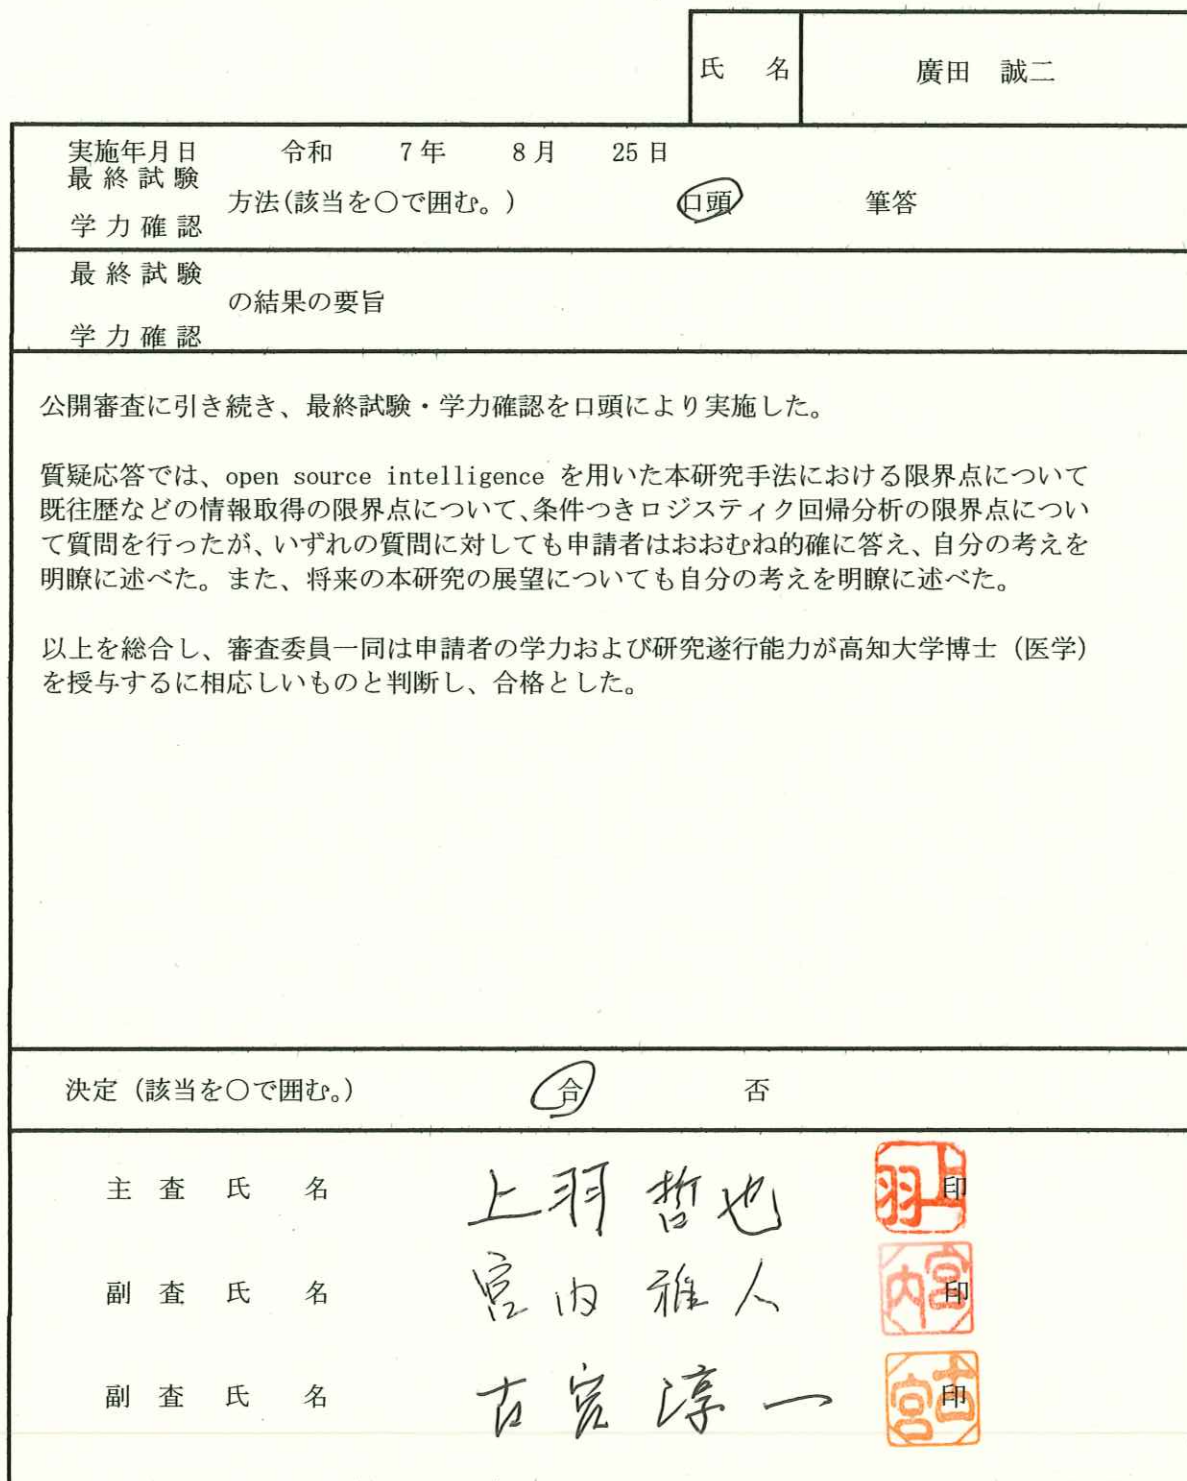 氏 名 廣田 誠二
実施年月日 令和 7年 8月 25日
最終試験
方法(該当を○で囲む。) 口頭 筆答
学力確認
最終試験
の結果の要旨
学力確認
公開審査に引き続き、最終試験・学力確認を口頭により実施した。
質疑応答では、open source intelligence を用いた本研究手法における限界点について
既往歴などの情報取得の限界点について、条件つきロジスティク回帰分析の限界点につい
て質問を行ったが、いずれの質問に対しても申請者はおおむね的確に答え、自分の考えを
明瞭に述べた。また、将来の本研究の展望についても自分の考えを明瞭に述べた。
以上を総合し、審査委員一同は申請者の学力および研究遂行能力が高知大学博士（医学）
を授与するに相応しいものと判断し、合格とした。
決定（該当を○で囲む。） 合 否
主査氏名 上羽 哲也 印 上羽
副査氏名 宮内 雅人 印 宮内
副査氏名 古宮 淳一 印 古宮